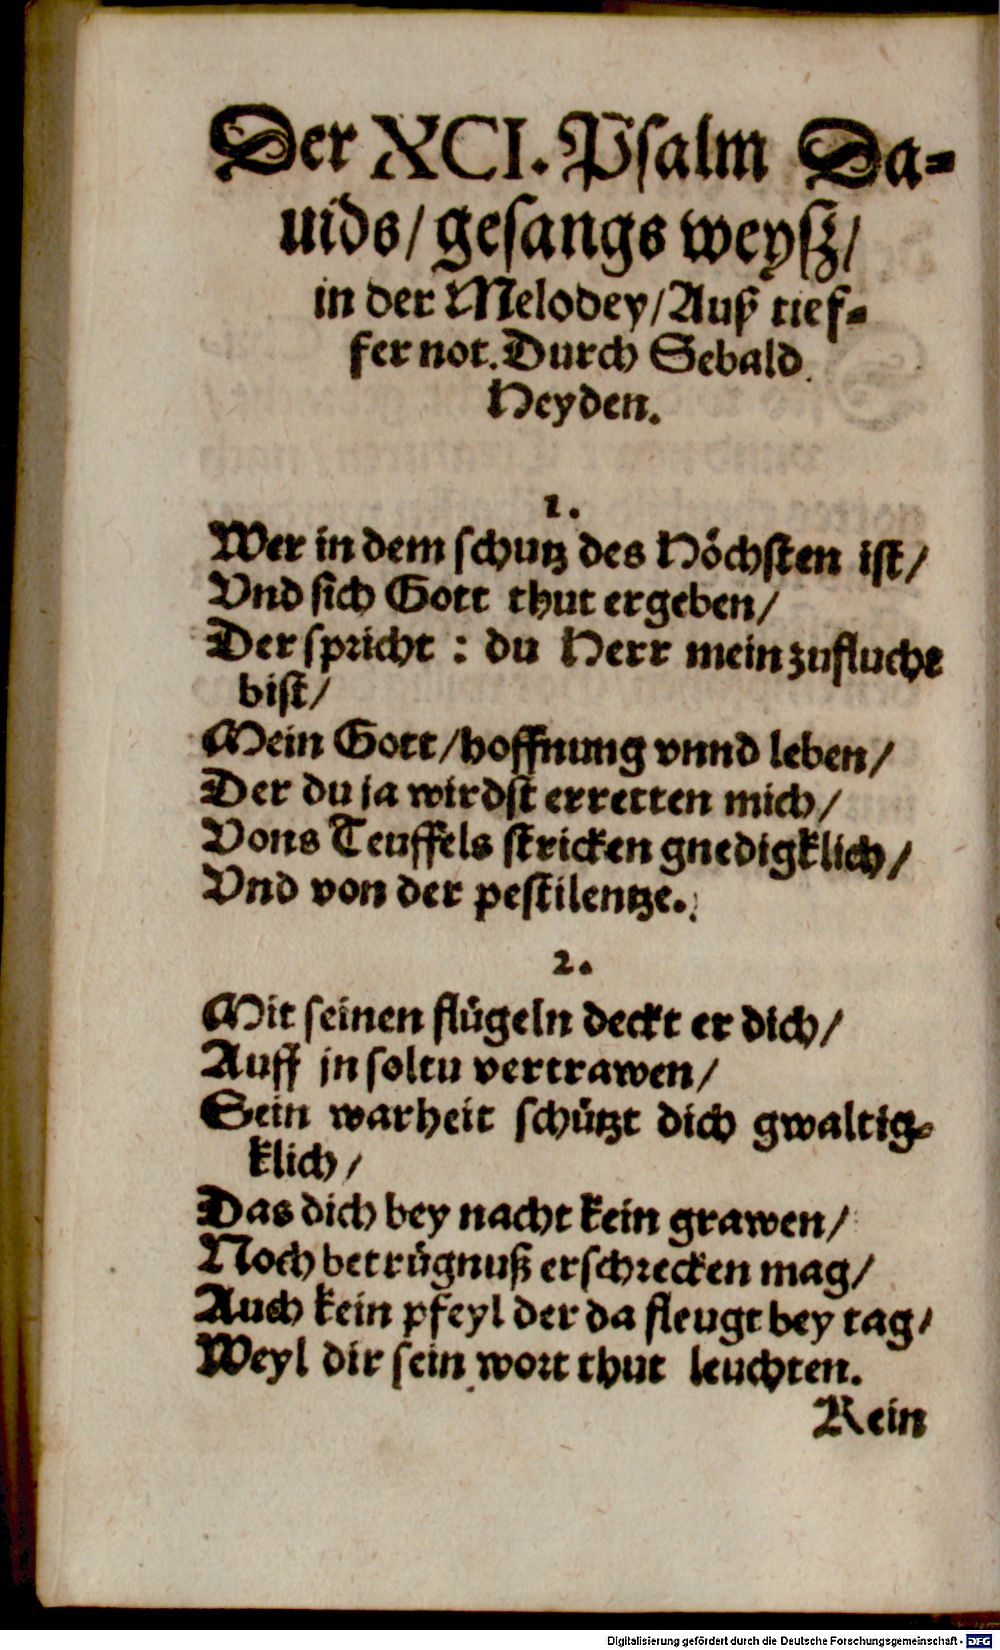 Der XCI. Psalm Da-
uids/ gesangs weysz/
in der Melodey/ Auß tief-
fer not. Durch Sebald
Heyden.
1.
Wer in dem schutz des Höchsten ist/
Vnd sich Gott thut ergeben/
Der spricht : du Herr mein zuflucht
bist/
Mein Gott/ hoffnung vnnd leben/
Der du ja wirdst erretten mich/
Vons Teuffels stricken gnedigklich/
Vnd von der pestilentze.
2.
Mit seinen flügeln deckt er dich/
Auff jn soltu vertrawen/
Sein warheit schützt dich gwaltig-
klich/
Das dich bey nacht kein grawen/
Noch betrügnuß erschrecken mag/
Auch kein pfeyl der da fleugt bey tag/
Weyl dir sein wort thut leuchten.
Kein
Digitalisierung gefördert durch die Deutsche Forschungsgemeinschaft - DFG